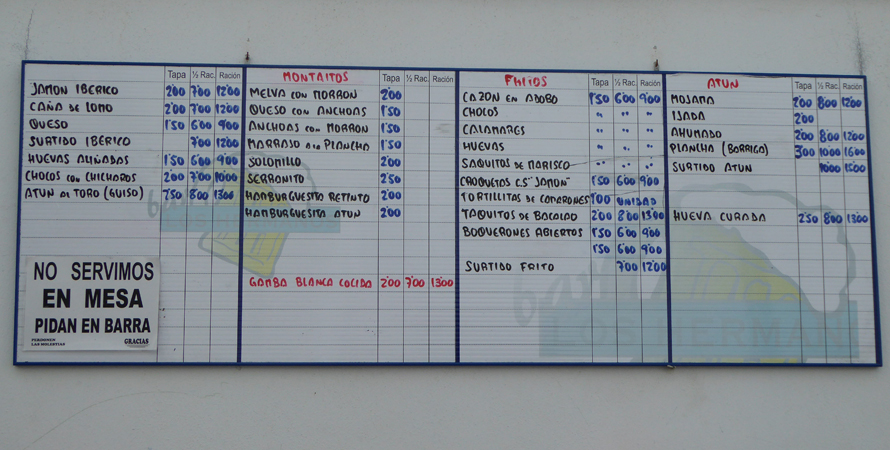 Tapa ½ Rac. Ración
JAMON IBERICO 2'00 7'00 12'00
CAÑA DE LOMO 2'00 7'00 12'00
QUESO 1'50 6'00 9'00
SURTIDO IBERICO 7'00 12'00
HUEVAS ALIÑADAS 1'50 6'00 9'00
CHOCOS CON CHICHAROS 2'00 7'00 10'00
ATUN DE TORO (GUISO) 2'50 8'00 13'00
NO SERVIMOS
EN MESA
PIDAN EN BARRA
PERDONEN
LAS MOLESTIAS
GRACIAS
MONTAITOS Tapa ½ Rac. Ración
MELVA CON MORRON 2'00
QUESO CON ANCHOAS 1'50
ANCHOAS CON MORRON 1'50
MARRAJO A LA PLANCHA 1'50
SOLOMILLO 2'00
SERRANITO 2'50
HAMBURGUESITA RETINTO 2'00
HAMBURGUESITA ATUN 2'00
GAMBA BLANCA COCIDA 2'00 7'00 13'00
FRITOS Tapa ½ Rac. Ración
CAZON EN ADOBO 1'50 6'00 9'00
CHOCOS " " "
CALAMARES " " "
HUEVAS " " "
SAQUITOS DE MARISCO " " "
CROQUETAS C.S "JAMON" 1'50 6'00 9'00
TORTILLITAS DE CAMARONES 1'00 UNIDAD
TAQUITOS DE BACALAO 2'00 8'00 13'00
BOQUERONES ABIERTOS 1'50 6'00 9'00
1'50 6'00 9'00
SURTIDO FRITO 7'00 12'00
ATUN Tapa ½ Rac. Ración
MOJAMA 2'00 8'00 12'00
IJADA 2'00
AHUMADO 2'00 8'00 12'00
PLANCHA (BARRIGA) 3'00 10'00 16'00
SURTIDO ATUN 10'00 15'00
HUEVA CURADA 2'50 8'00 13'00